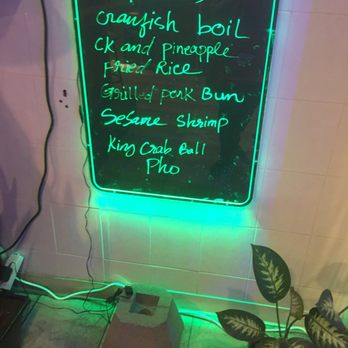 crawfish boil
CK and Pineapple
Fried Rice
Grilled pork Bun
Sesame Shrimp
King Crab Ball
Pho